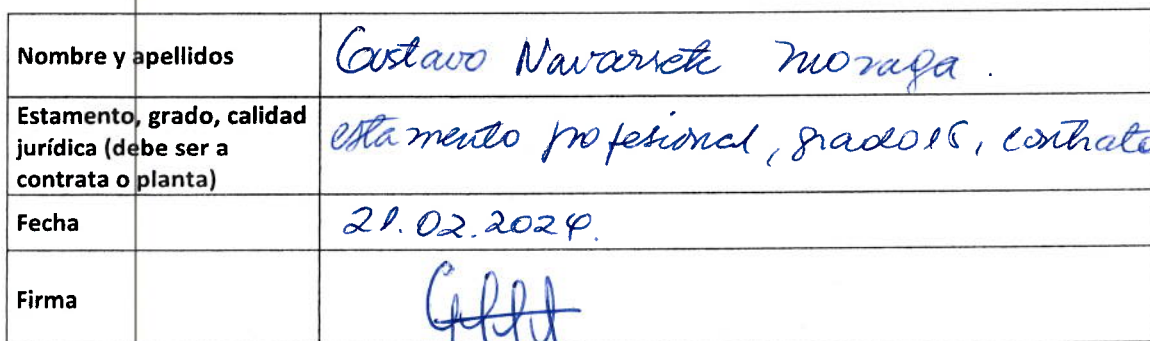 Nombre y apellidos
Gustavo Navarrete Moraga.
Estamento, grado, calidad
jurídica (debe ser a
contrata o planta)
estamento profesional, grado 15, contrata
Fecha
21.02.2024.
Firma